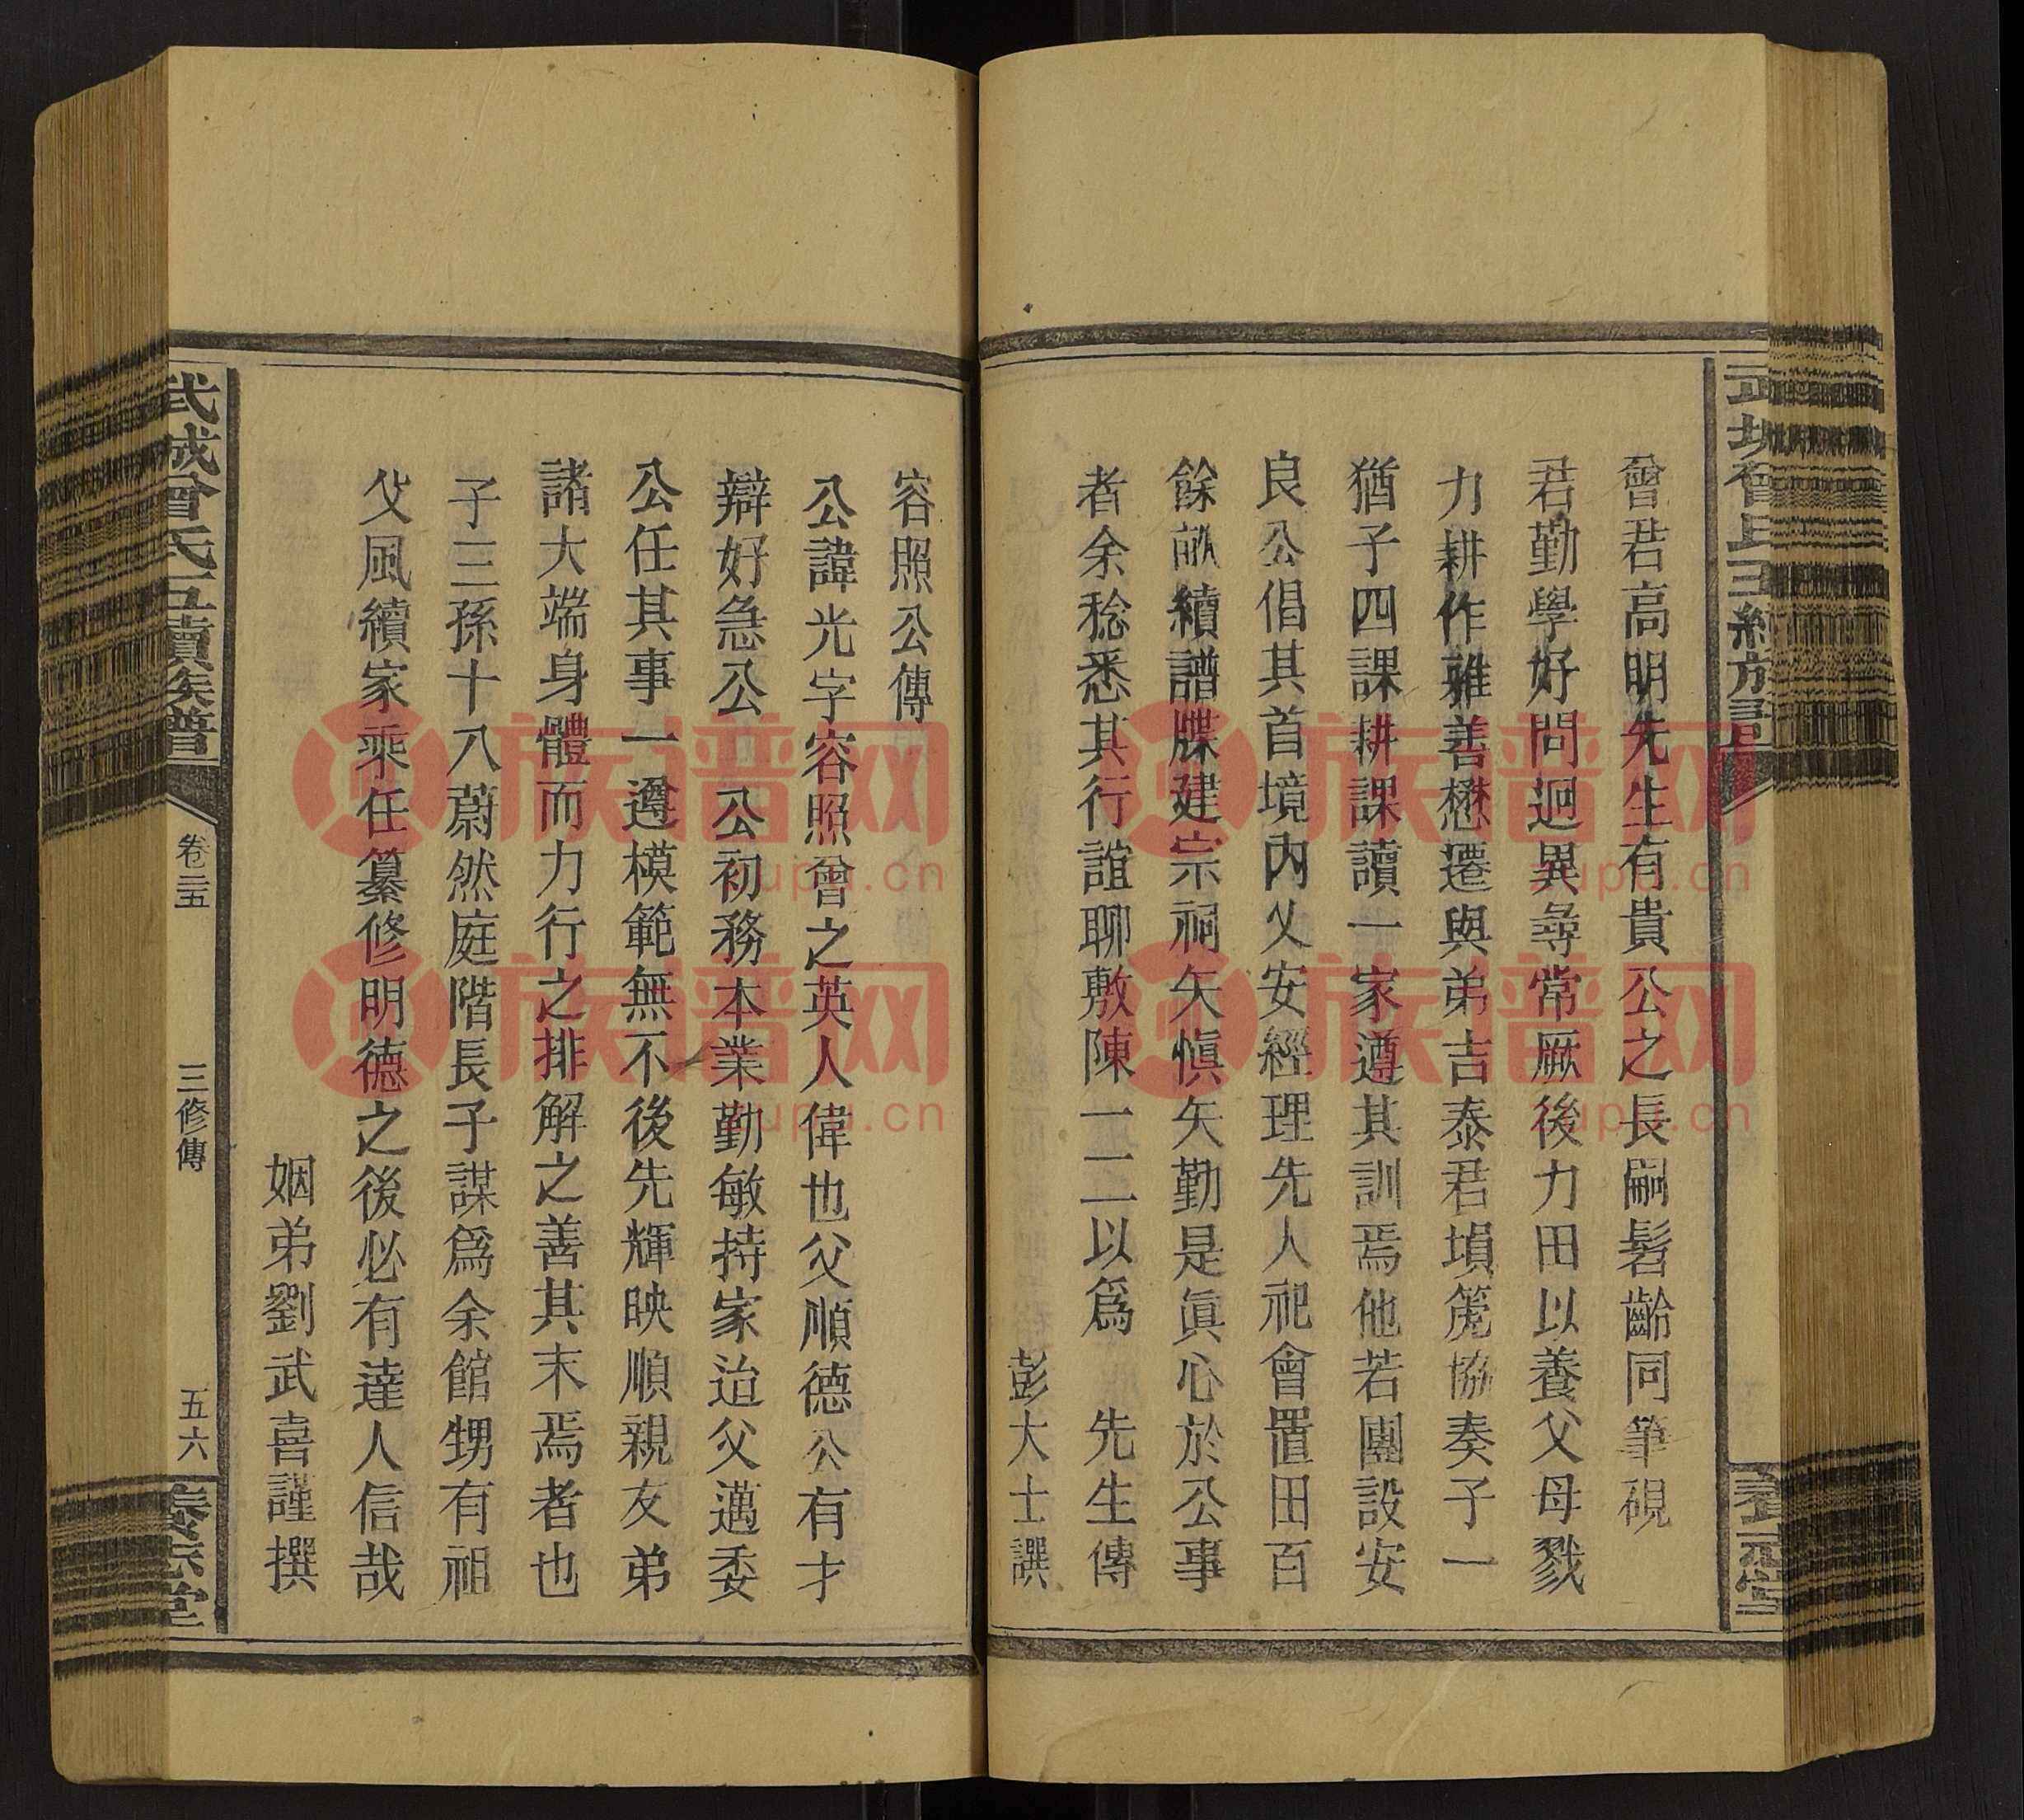 曾君高明先生有貴公之長嗣髫齡同筆硯
君勤學好問迥異尋常厥後力田以養父母戮
力耕作雍善懋遷與弟吉泰君塤箎協奏子一
猶子四課耕課讀一家遵其訓焉他若團設安
良公倡其首境內乂安經理先人祀會置田百
餘畝續譜牒建宗祠矢慎矢勤是眞心於公事
者余稔悉其行誼聊敷陳一二以爲 先生傳
彭大士譔
容照公傳
公諱光字容照曾之英人偉也父順德公有才
辯好急公 公初務本業勤敏持家迨父邁委
公任其事一遵模範無不後先輝映順親友弟
諸大端身體而力行之排解之善其末焉者也
子三孫十八蔚然庭階長子謀爲余館甥有祖
父風續家乘任纂修明德之後必有達人信哉
姻弟劉武喜謹撰
武城曾氏五續族譜
卷三五
三修傳
五六
族谱网
zupu.cn